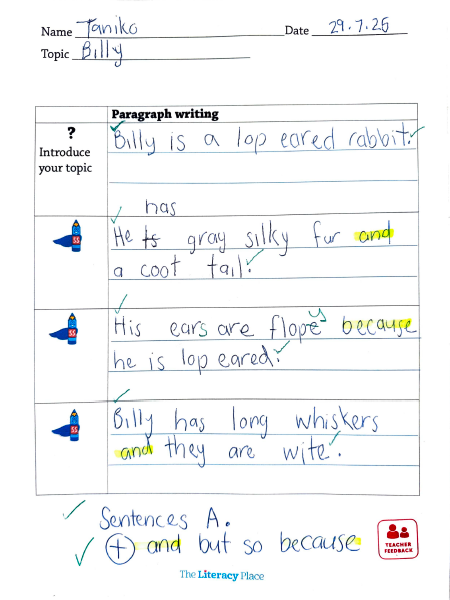 Name Taniko Date 29.7.25
Topic Billy
Paragraph writing
?
Introduce
your topic
Billy is a lop eared rabbit.
has
He is gray silky fur and
a coot tail.
SS
y
His ears are flope because
he is lop eared.
SS
Billy has long whiskers
and they are wite.
SS
Sentences A.
+ and but so because
TEACHER
FEEDBACK
The Literacy Place